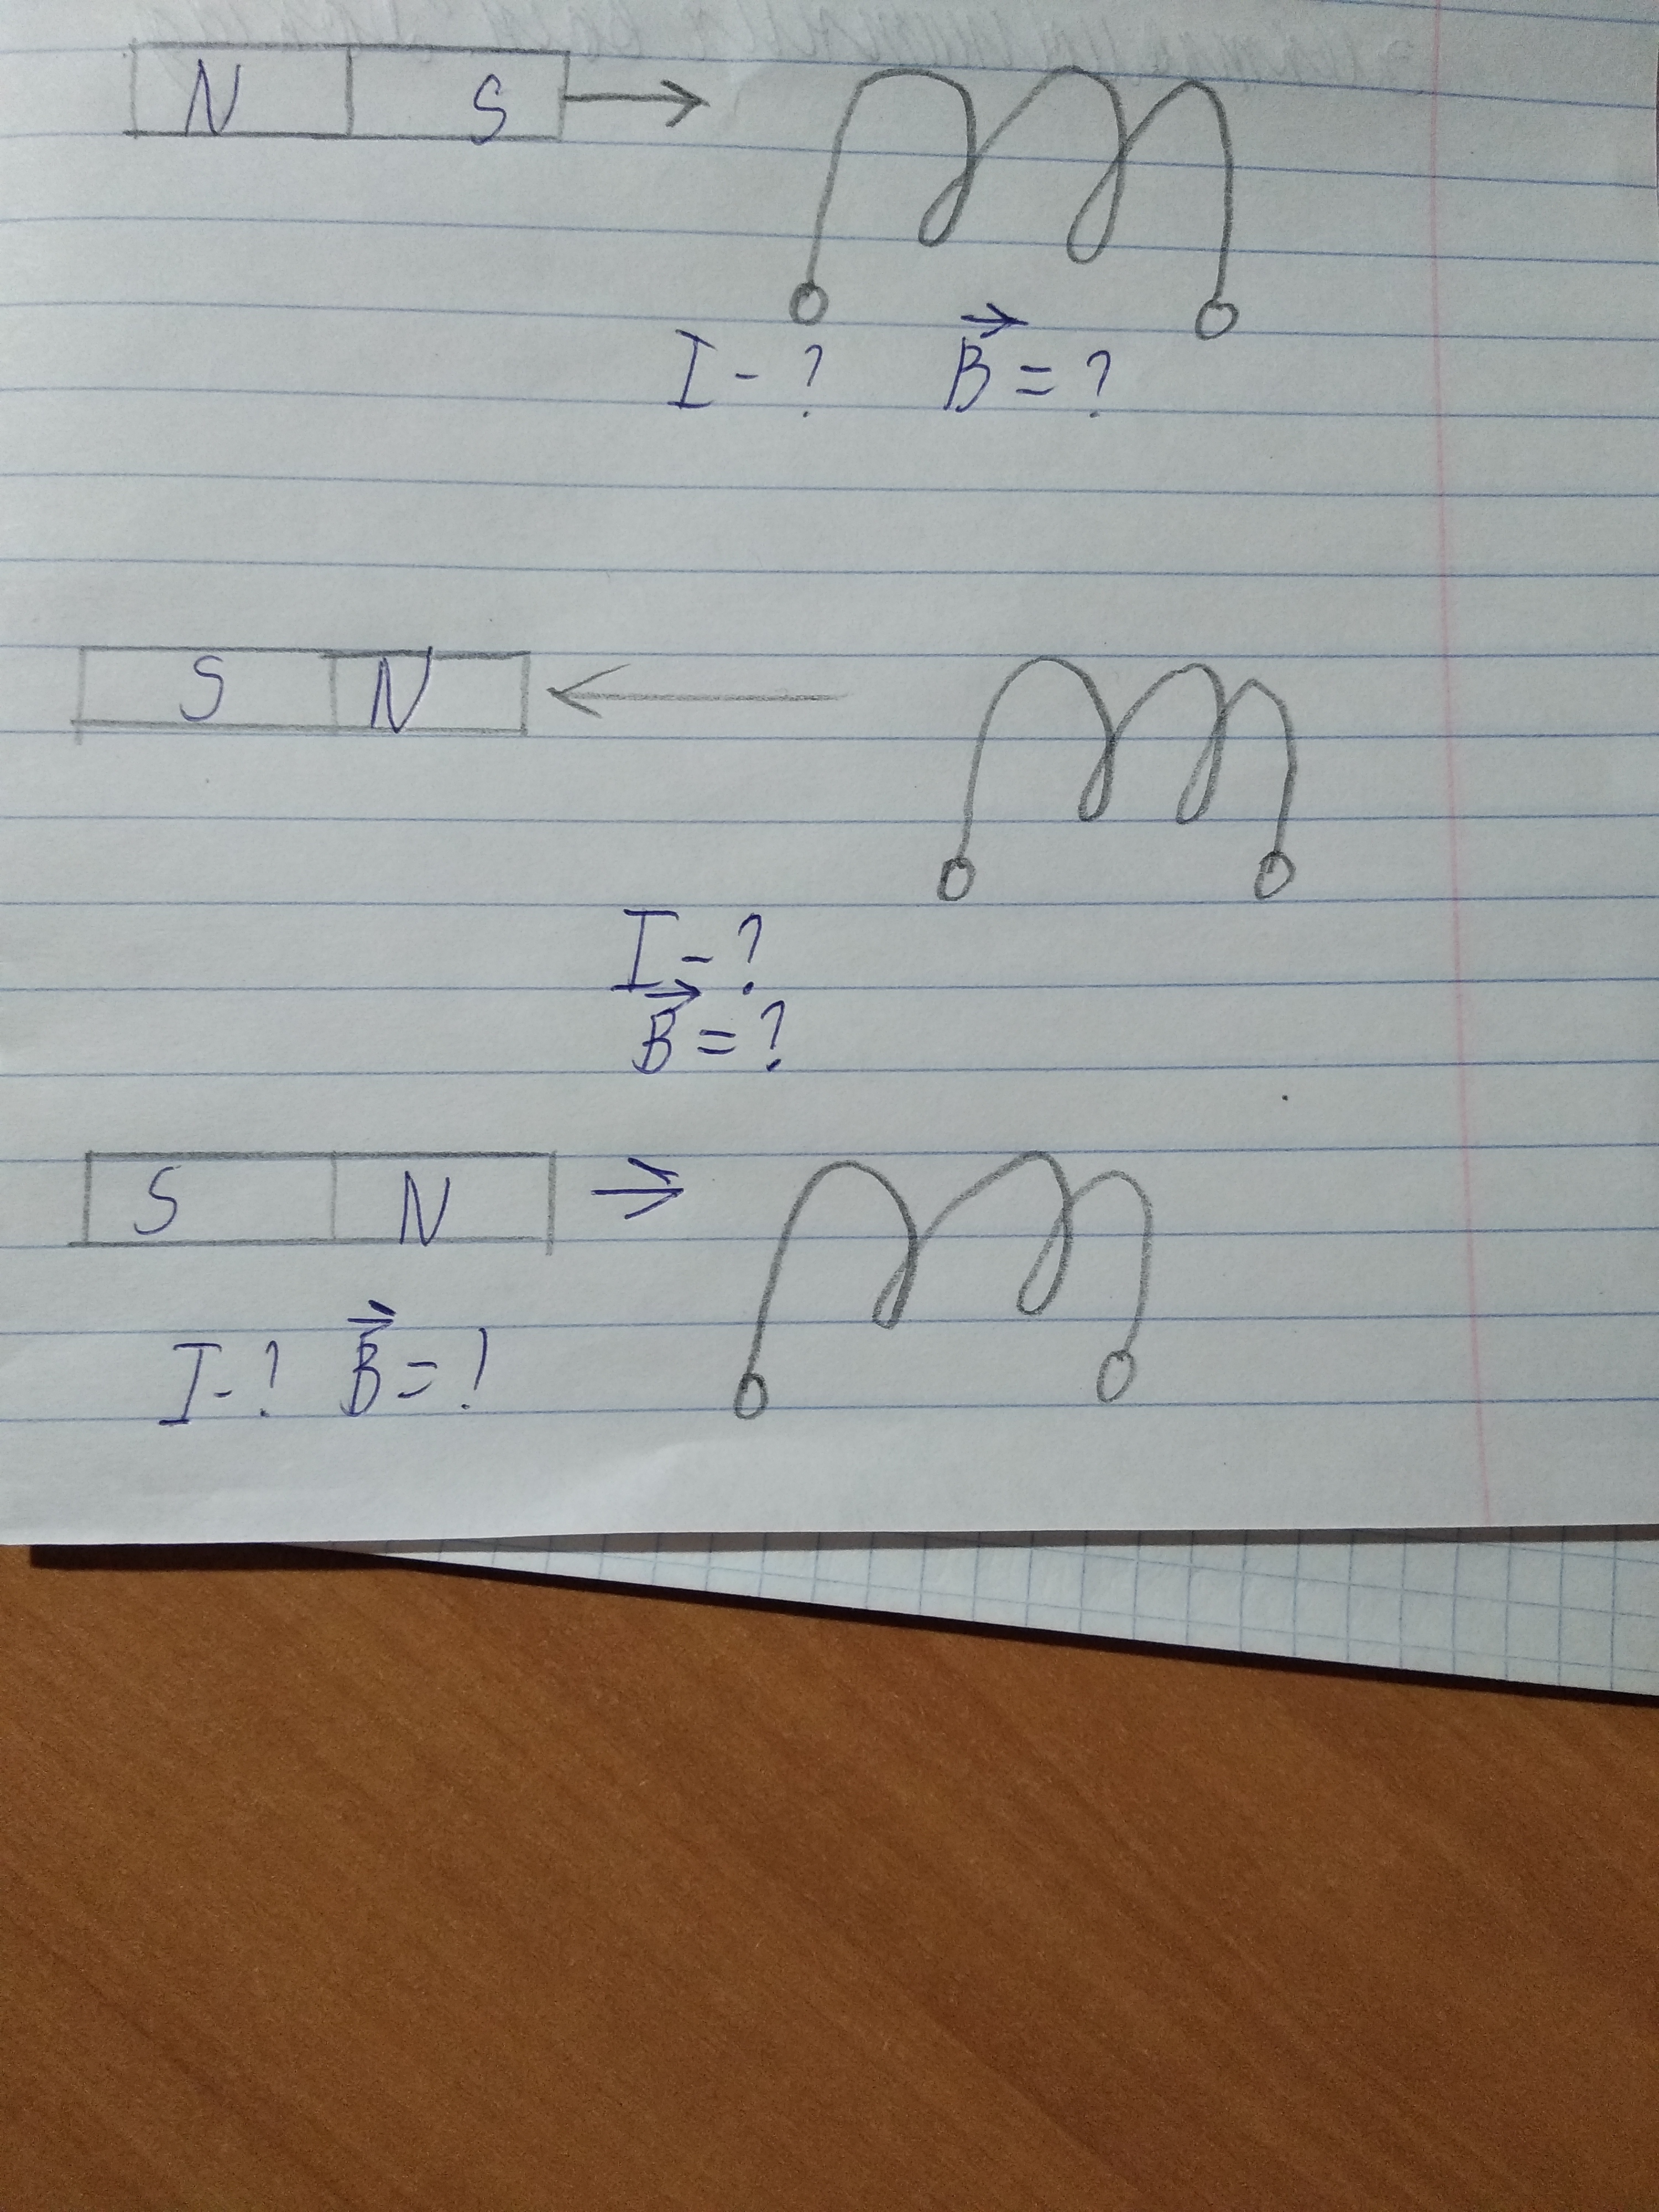 N S
I - ? B = ?
S N
I - ?
B = ?
S N
I - ? B = ?